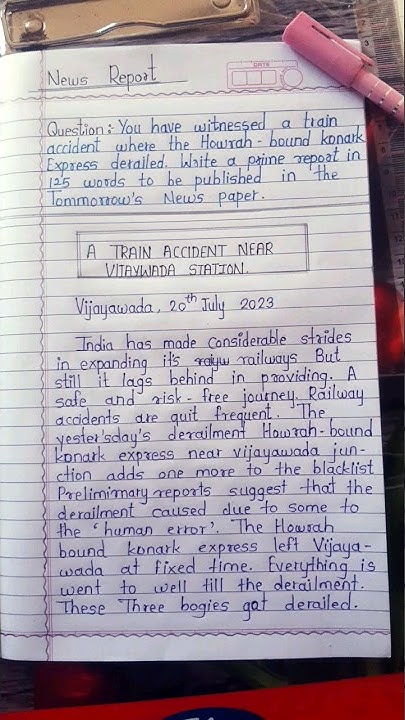 News Report
DATE
Question:- You have witnessed a train
accident where the Howrah-bound konark
Express derailed. Write a prime report in
125 words to be published in the
Tommorrow's News paper.
A TRAIN ACCIDENT NEAR
VIJAYWADA STATION.
Vijayawada, 20th July 2023
India has made considerable strides
in expanding it's railways But
still it lags behind in providing. A
safe and risk-free journey. Railway
accidents are quit frequent. The
yester'sday's derailment Howrah-bound
konark express near vijayawada jun-
ction adds one more to the blacklist
Prelimirnary reports suggest that the
derailment caused due to some to
the 'human error'. The Howrah
bound konark express left Vijaya-
wada at fixed time. Everything is
went to well till the derailment.
These Three bogies got derailed.